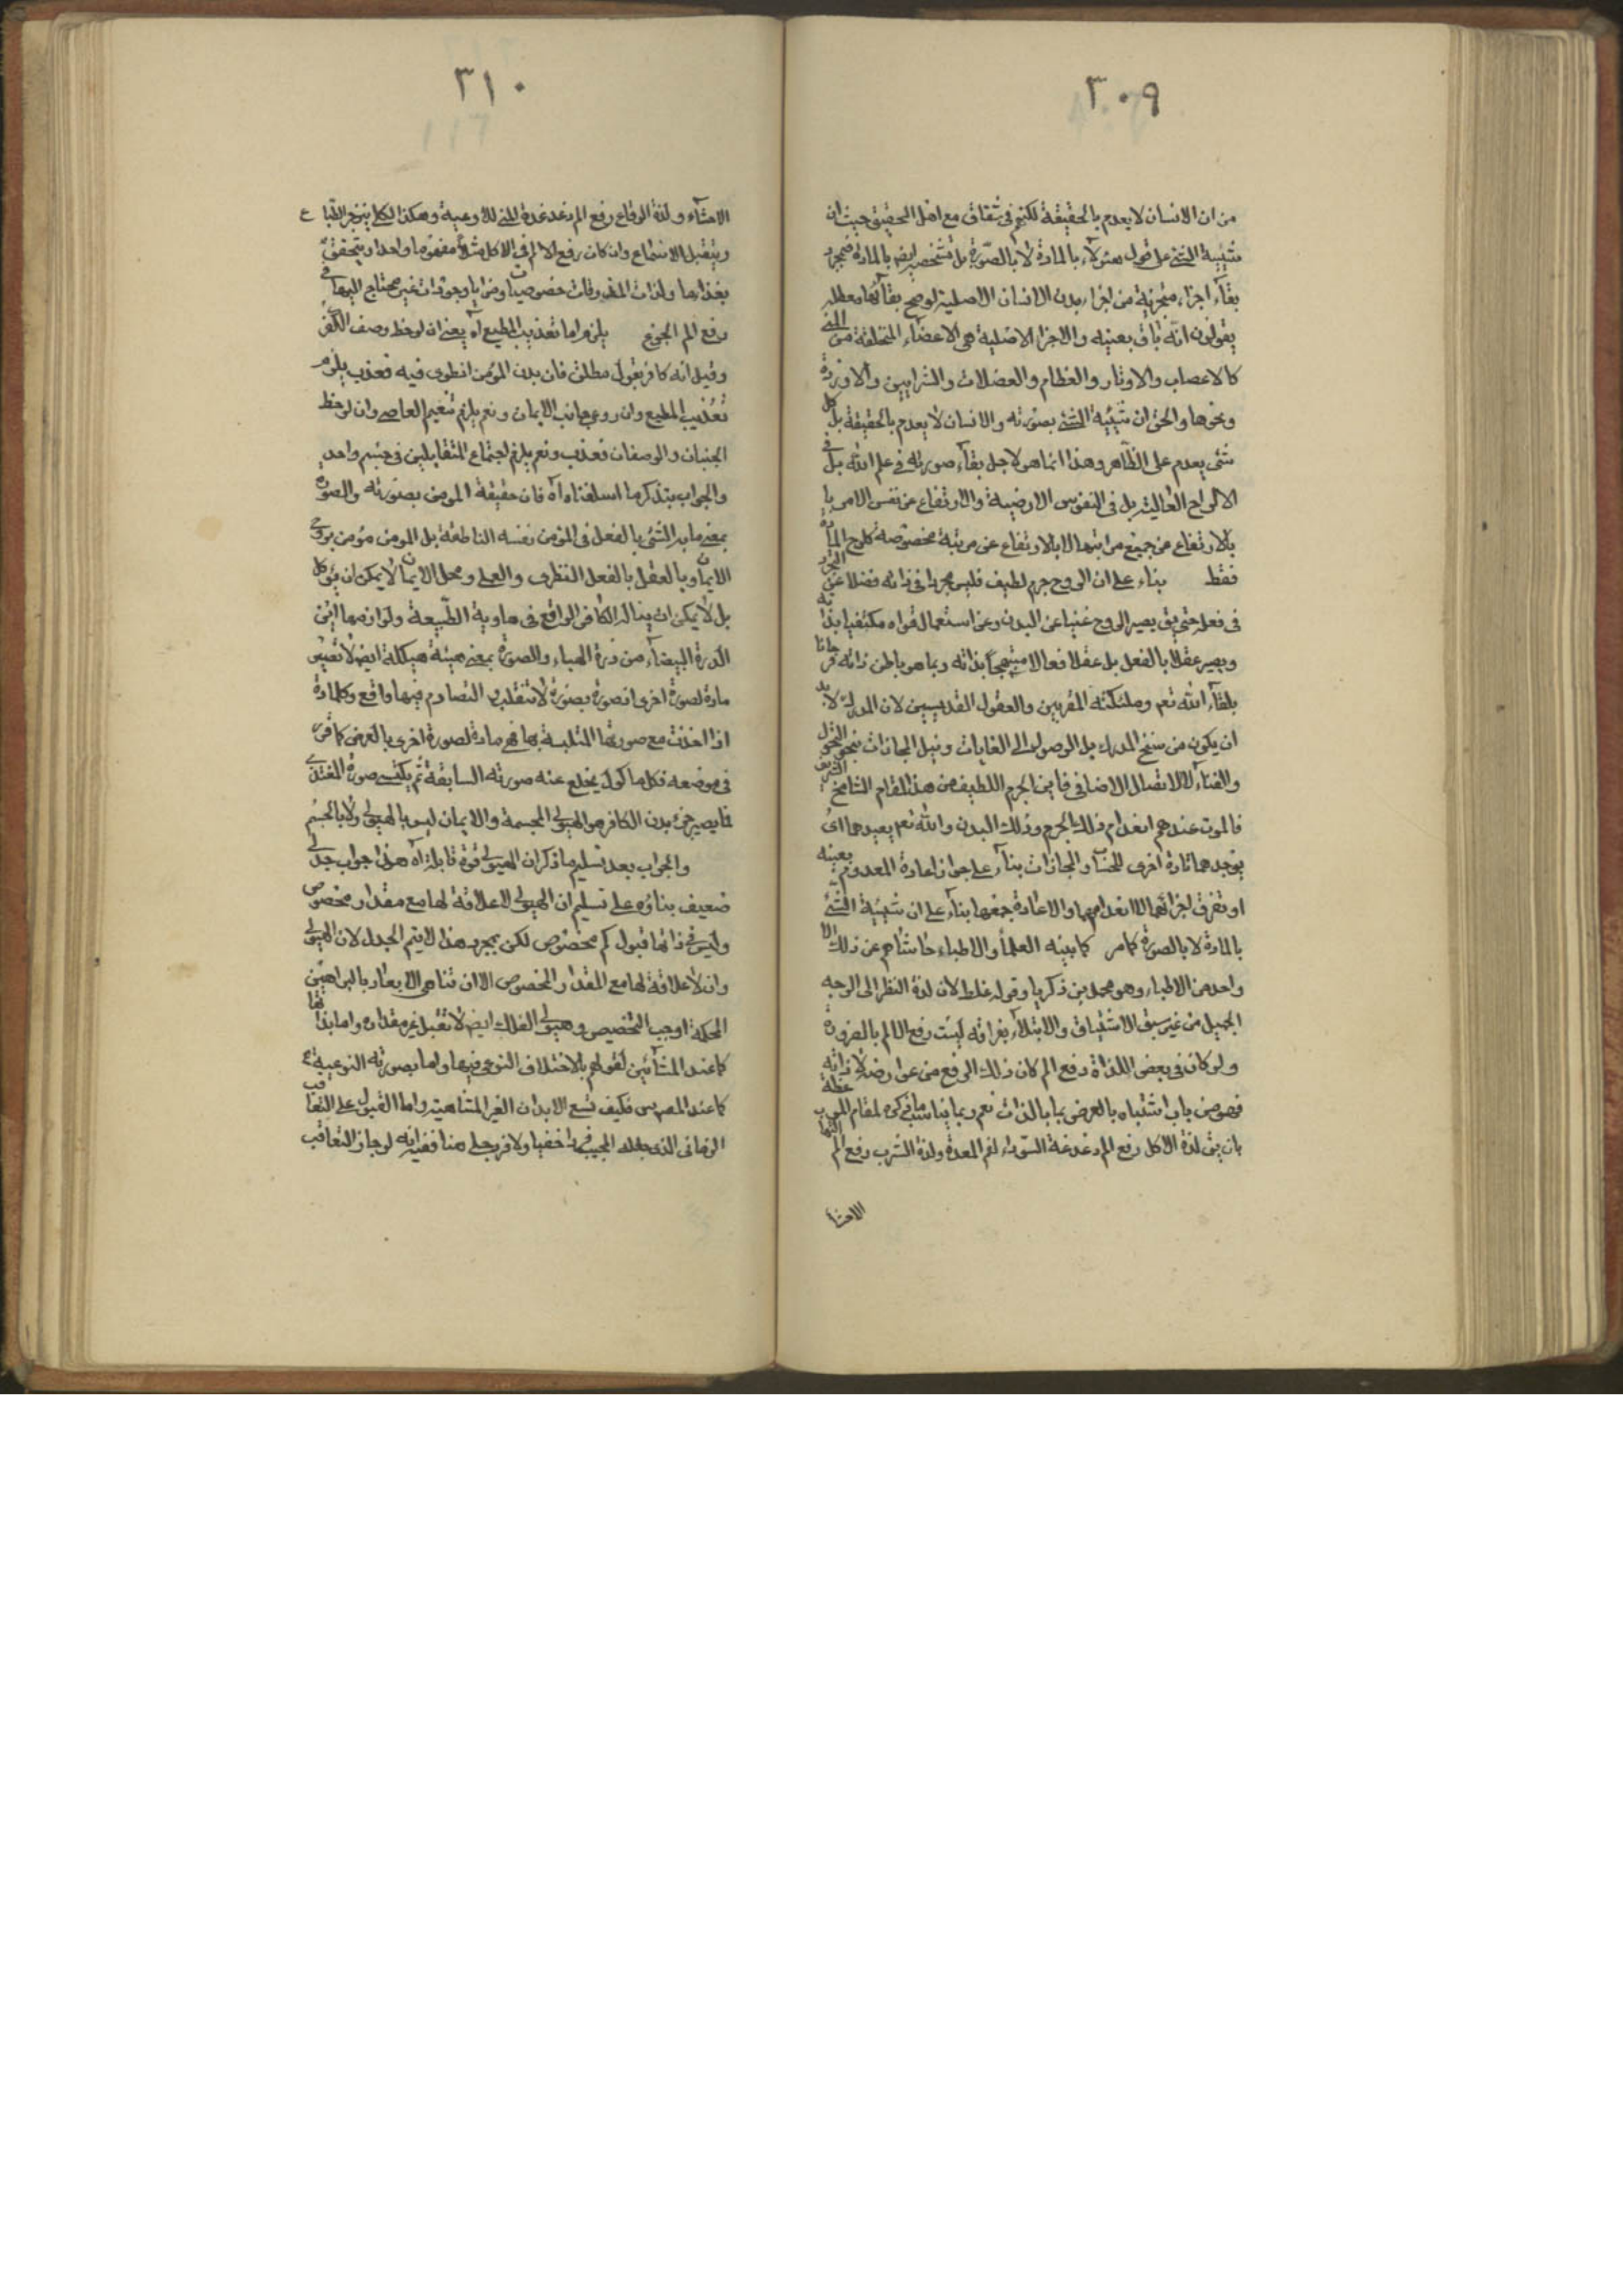 ٣٠٩
من ان الانسان لا يعدم بالحقيقة لكنهم فى شقاق مع اهل التحقيق حيث ان
شيئية الشئ على قول هؤلآء بالمادة لا بالصّورة بل تشخصه ايض بالمادة فبمجرد
بقآء اجزاء متجزية من اجزاء بدن الانسان الاصلية لوصح بقائها معطلة
يقولون انه باق بعينه والاجزا الاصلية هى الاعضآء المتخلقة من المنى
كالاعصاب والاوتار والعظام والعضلات والشرايين والاوردة
ونحوها والحق ان شيئية الشئ بصورته والانسان لا يعدم بالحقيقة بل كل
شئ يعدم على الظآهر وهذا انما هو لاجل بقآء صورته فى علم الله بل فى
الالواح العالية بل فى النفوس الارضية والارتفاع عن نفس الامر با
بالارتفاع عن جميع مراتبها لا بالارتفاع عن مرتبة مخصوصة كلوح المادة
فقط بناء على ان الروح جرم لطيف فليس مجردا فى ذاته فضلا عن التجرد
فى فعله حتى يق يصير الروح غنيا عن البدن وعن استعمال قواه مكتفيا بذاته
ويصير عقلا بالفعل بل عقلا فعالا مبتهجاً بذاته وبما هو باطن ذاته فرحانا
بلقآء الله تعم وملئكته المقربين والعقول القديسين لان المدرك لابد
ان يكون من سنخ المدرك بل الوصول الى الغايات ونيل المجازات بنحو التحول
والفناء لا الاتصال الاضافى فاين الجرم اللطيف من هذا المقام الشامخ الشريف
فالموت عندهم انعدام ذلك الجرم وذلك البدن والله تعم يعيدهما اى
يوجدهما تارة اخرى للحساب والمجازات بنآء على جواز اعادة المعدوم بعينه
او تفرق اجزائهما لا انعدامهما والاعادة جمعها بنآء على ان شيئية الشئ
بالمادة لا بالصورة كما مر كما بينه العلمآ والاطباء حاشاهم عن ذلك الا
واحد من الاطباء وهو محمد بن ذكريا وقوله غلط لان لذة النظر الى الوجه
الجميل من غير سبق الاشتياق والابتلآء بفراقه ليست رفع الالم بالضرورة
ولو كان فى بعض اللذاة دفع الم كان ذلك الرفع من عوارضه لا ذاته
فهو من باب اشتباه ما بالعرض بما بالذات نعم ربما يناسب ما ذكره لمقام الموعظة
بان يق لذة الاكل رفع الم دغدغة السوداء لفم المعدة ولذة الشرب رفع الم التهاب
الاحشا
٣١٠
الاحشآء ولذة الوقاع رفع الم دغدغة المنى للاوعية وهكذا لكى ينزجر الطباع
ويتقبل الاسماع وان كان رفع الالم فى الاكل مثلاً مفهوما واحدا ويتحقق
بغذاء ما ولذات المذوقات خصوصيات ومزايا وجودات غير محتاج اليها فى
رفع الم الجوع يلزم اما تعذيب المطيع آه يعنى ان لوحظ وصف الكفر
وقيل انه كافر بقول مطلق فان بدن المؤمن انطوى فيه فعذب يلزم
تعذيب المطيع وان روعى جانب الايمان ونعم يلزم تنعيم العاصى وان لوحظ
الجنبان والوصفان فعذب ونعم يلزم اجتماع المتقابلين فى جسم واحد
والجواب بتذكر ما اسلفناه آه فان حقيقة المومن بصورته والصورة
بمعنى ما به الشئ بالفعل فى المؤمن نفسه الناطقة بل المومن مؤمن بروح
الايمان وبالعقل بالفعل النظرى والعملى ومحل الايمان لا يمكن ان يؤكل
بل لا يمكن ان يناله الكافر الواقع فى هاوية الطبيعة ولوازمها اين
الدرة البيضآء من ذرة الهباء والصورة بمعنى هيئة هيكله ايض لا تصير
مادة لصورة اخرى فصورة بصورة لا تنقلب التصادم فيها واقع وكل مادة
اذا اخذت مع صورتها المتلبسة بها فهى مادة لصورة اخرى بالعرض كما قرر
فى موضعه فكل ماكول يخلع عنه صورته السابقة ثم يكتسى صورة المغتذى
فما يصير جزء بدن الكافر هو الهيولى المجسمة والايمان ليس بالهيولى ولا بالجسم
والجواب بعد تسليم ما ذكر ان الهيولى قوة قابلة آه هذا جواب جدلى
ضعيف بناؤه على تسليم ان الهيولى لا علاقة لها مع مقدار مخصوص
وليس فى ذاتها قبول كم مخصوص لكن بمجرد هذا لا يتم الجدل لان الهيولى
وان لا علاقة لها مع المقدار المخصوص الا ان تناهى الابعاد بالبراهين
المحكمة اوجب التخصيص وهيولى الفلك ايض لا تقبل غير مقداره اما بذاتها
كما عند المشآئين لقولهم بالاختلاف النوعى فيها واما بصورته النوعية
كما عند فكيف تسع الابدان الغير المتناهية واما القبول على التعاقب
الزمانى الذى جعله المجيب فردا خفيا ولا فرد جلى هنا ففيه انه لو جاز التعاقب